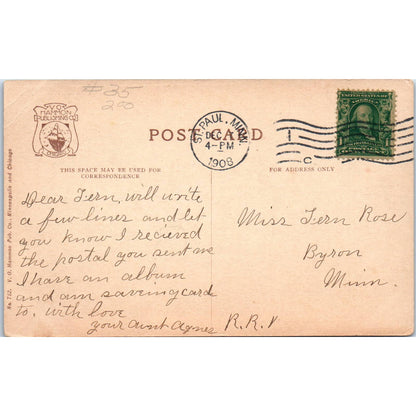 #35
200
V.O.
HAMMON
PUBLISHING CO.
POST CARD
ST. PAUL, MINN.
DEC
4-PM
1908
THIS SPACE MAY BE USED FOR
CORRESPONDENCE
FOR ADDRESS ONLY
UNITED STATES OF AMERICA
C
Dear Fern, will write
a few lines and let
you know I recieved
the postal you sent me
I have an album
and am saveing cards
to. with love
your aunt Agnes
Miss Fern Rose
Byron
Minn.
R.R.1
No. 752. V. O. Hammon Pub. Co., Minneapolis and Chicago